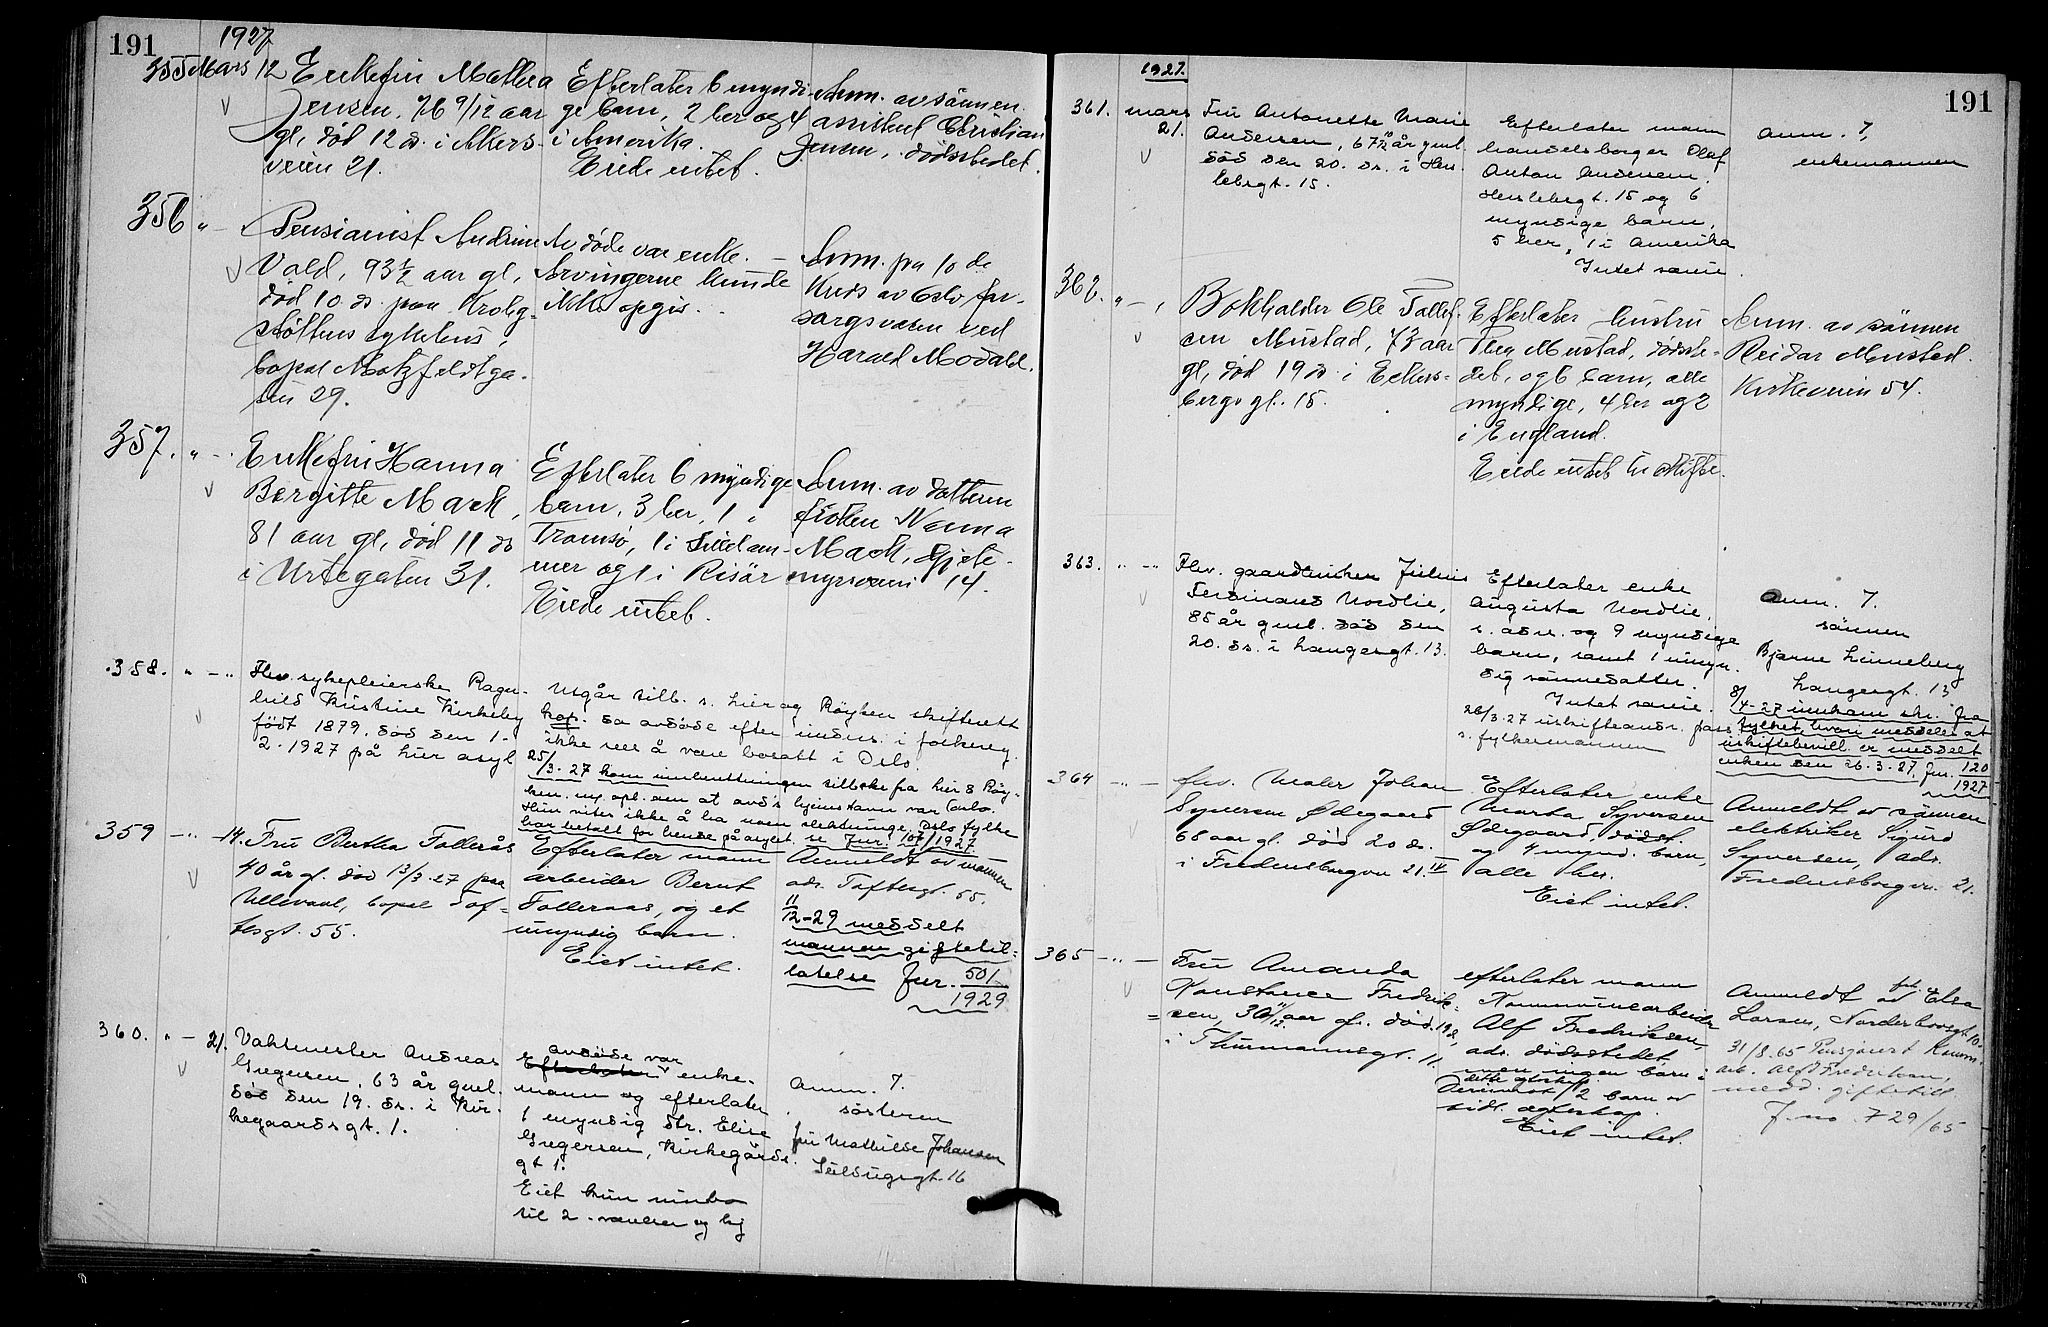 191
1927
355 Mars 12
Enkefru Mathea
Jensen, 76 9/12 aar
gl, død 12 ds. i Akers-
veien 21.
Efterlater 6 myndi-
ge barn, 2 her og 4
i Amerika.
Eiede intet.
Anm. av sønnen
assistent Christian
Jensen, dødsstedet.
356 " -
Pensionist Andrine
Vold, 93 1/2 aar gl,
død 10 ds. paa Krohg-
støttens sykehus,
bopæl Motzfeldtga-
ten 29.
Av døde var enke. -
Arvingerne kunde
ikke opgis.
Anm. fra 10 de
Kreds av Oslo for-
sorgsvæsen ved
Harald Modahl.
357. " -
Enkefru Hanna
Bergitte Mack,
81 aar gl, død 11 ds
i Urtegaten 31.
Efterlater 6 myndige
barn, 3 her, 1 i
Tromsø, 1 i Lilleham-
mer og 1 i Risør
Eiede intet.
Anm. av datteren
frøken Nanna
Mack, Gjete-
myrsveien 14.
358. " - "
Fhv. sykepleierske Ragn-
hild Kristine Kirkeby
født 1879, død den 1.
2. 1927 på Lier asyl
Utgår tilb. s. Lier og Røyken skifterett
kop. da avdøde efter unders. i folkereg.
ikke sees å være bosatt i Oslo.
25/3. 27 kom innberetningen tilbake fra Lier & Røy-
ken, m. opl. om at avd's hjemstavn var Oslo.
Hun vites ikke å ha noen slektninge, Oslo fylke
har betalt for hende på asylet. se Jur. 107/1927.
359 - " - 14.
Fru Bertha Tollerås
40 år gl. død 13/3. 27 paa
Ullevaal, bopæl Tof-
tesgt. 55.
Efterlater mann
arbeider Bernt
Tolleraas, og et
umyndig barn.
Eiet intet.
Anmeldt av mannen
adr. Toftesgt. 55.
11/12-29 meddelt
mannen giftetil-
latelse Jur. 501/1929
360. " - 21.
Vaktmester Andreas
Gregersen, 63 år gml.
død den 19. ds. i Kir-
kegaardsgt. 1.
avdøde var
Efterlater enke-
mann og efterlater
1 myndig dtr. Elise
Gregersen, Kirkegårds-
gt 1.
Eiet kun innbo
til 2 værelser og kj
Anm. 7.
søsteren
fru Mathilde Johansen
191
1927.
361. mars
21.
Fru Antonette Marie
Andersen, 67 10/12 år gml.
død den 20. ds. i Hers-
lebsgt. 15.
Efterlater mann
handelsborger Olaf
Anton Andersen.
Herslebsgt. 15 og 6
myndige barn,
5 her, 1 i Amerika
Intet samie.
anm. 7.
enkemannen
362. " - "
Bokholder Ole Tollef-
sen Mustad, 73 aar
gl, død 19 ds. i Eckers-
bergs gt. 15.
Efterlater hustru
Thea Mustad, dødsste-
det, og 6 barn, alle
myndige, 4 her og 2
i England.
Eiede intet til skifte.
Anm. av sønnen
Reidar Mustad
Kirkeveien 54.
363. " - "
Fhv. gaardbruker Julius
Ferdinand Nordlie,
85 år gml. død den
20. ds. i Langesgt. 13.
Efterlater enke
Augusta Nordlie,
s. adr. og 9 myndige
barn, samt 1 umyn-
dig sønnedatter.
Intet samie.
26/3. 27 uskifteandr. pass.
s. fylkesmannen
anm. 7.
sønnen
Bjarne Linneberg
Langesgt. 13
8/4-27 innkom skr. fra
fylket, hvori meddeles at
uskiftebevill. er meddelt
enken den 26. 3. 27, Jur. 120/1927
364 - " -
fhv. Maler Johan
Syversen Ødegaard
68 aar gl. død 20 ds.
i Fredensborgvn 21. IV
Efterlater enke
Marta Syversen
Ødegaard, dødst.
og 4 mynd. barn,
alle her.
Eiet intet.
Anmeldt av sønnen
elektriker Sigurd
Syversen, adr.
Fredensborgvn. 21.
365 - " -
Fru Amanda
Konstance Fredrik-
sen, 30 11/12 aar gl. død 19 ds,
i Thurmannsgt. 11.
efterlater mann
Kommunearbeider
Alf Fredriksen,
adr. dødsstedet,
men ingen barn i
dette egteskap.
Derimot 2 barn av
tidl. egteskap.
Eiet intet.
Anmeldt av frk. Elsa
Larsen, Norderhovsgt. 10.
31/8. 65 Pensjonert Komm.
arb. Alf Fredriksen,
medd. giftetill.
J. no. 729/65